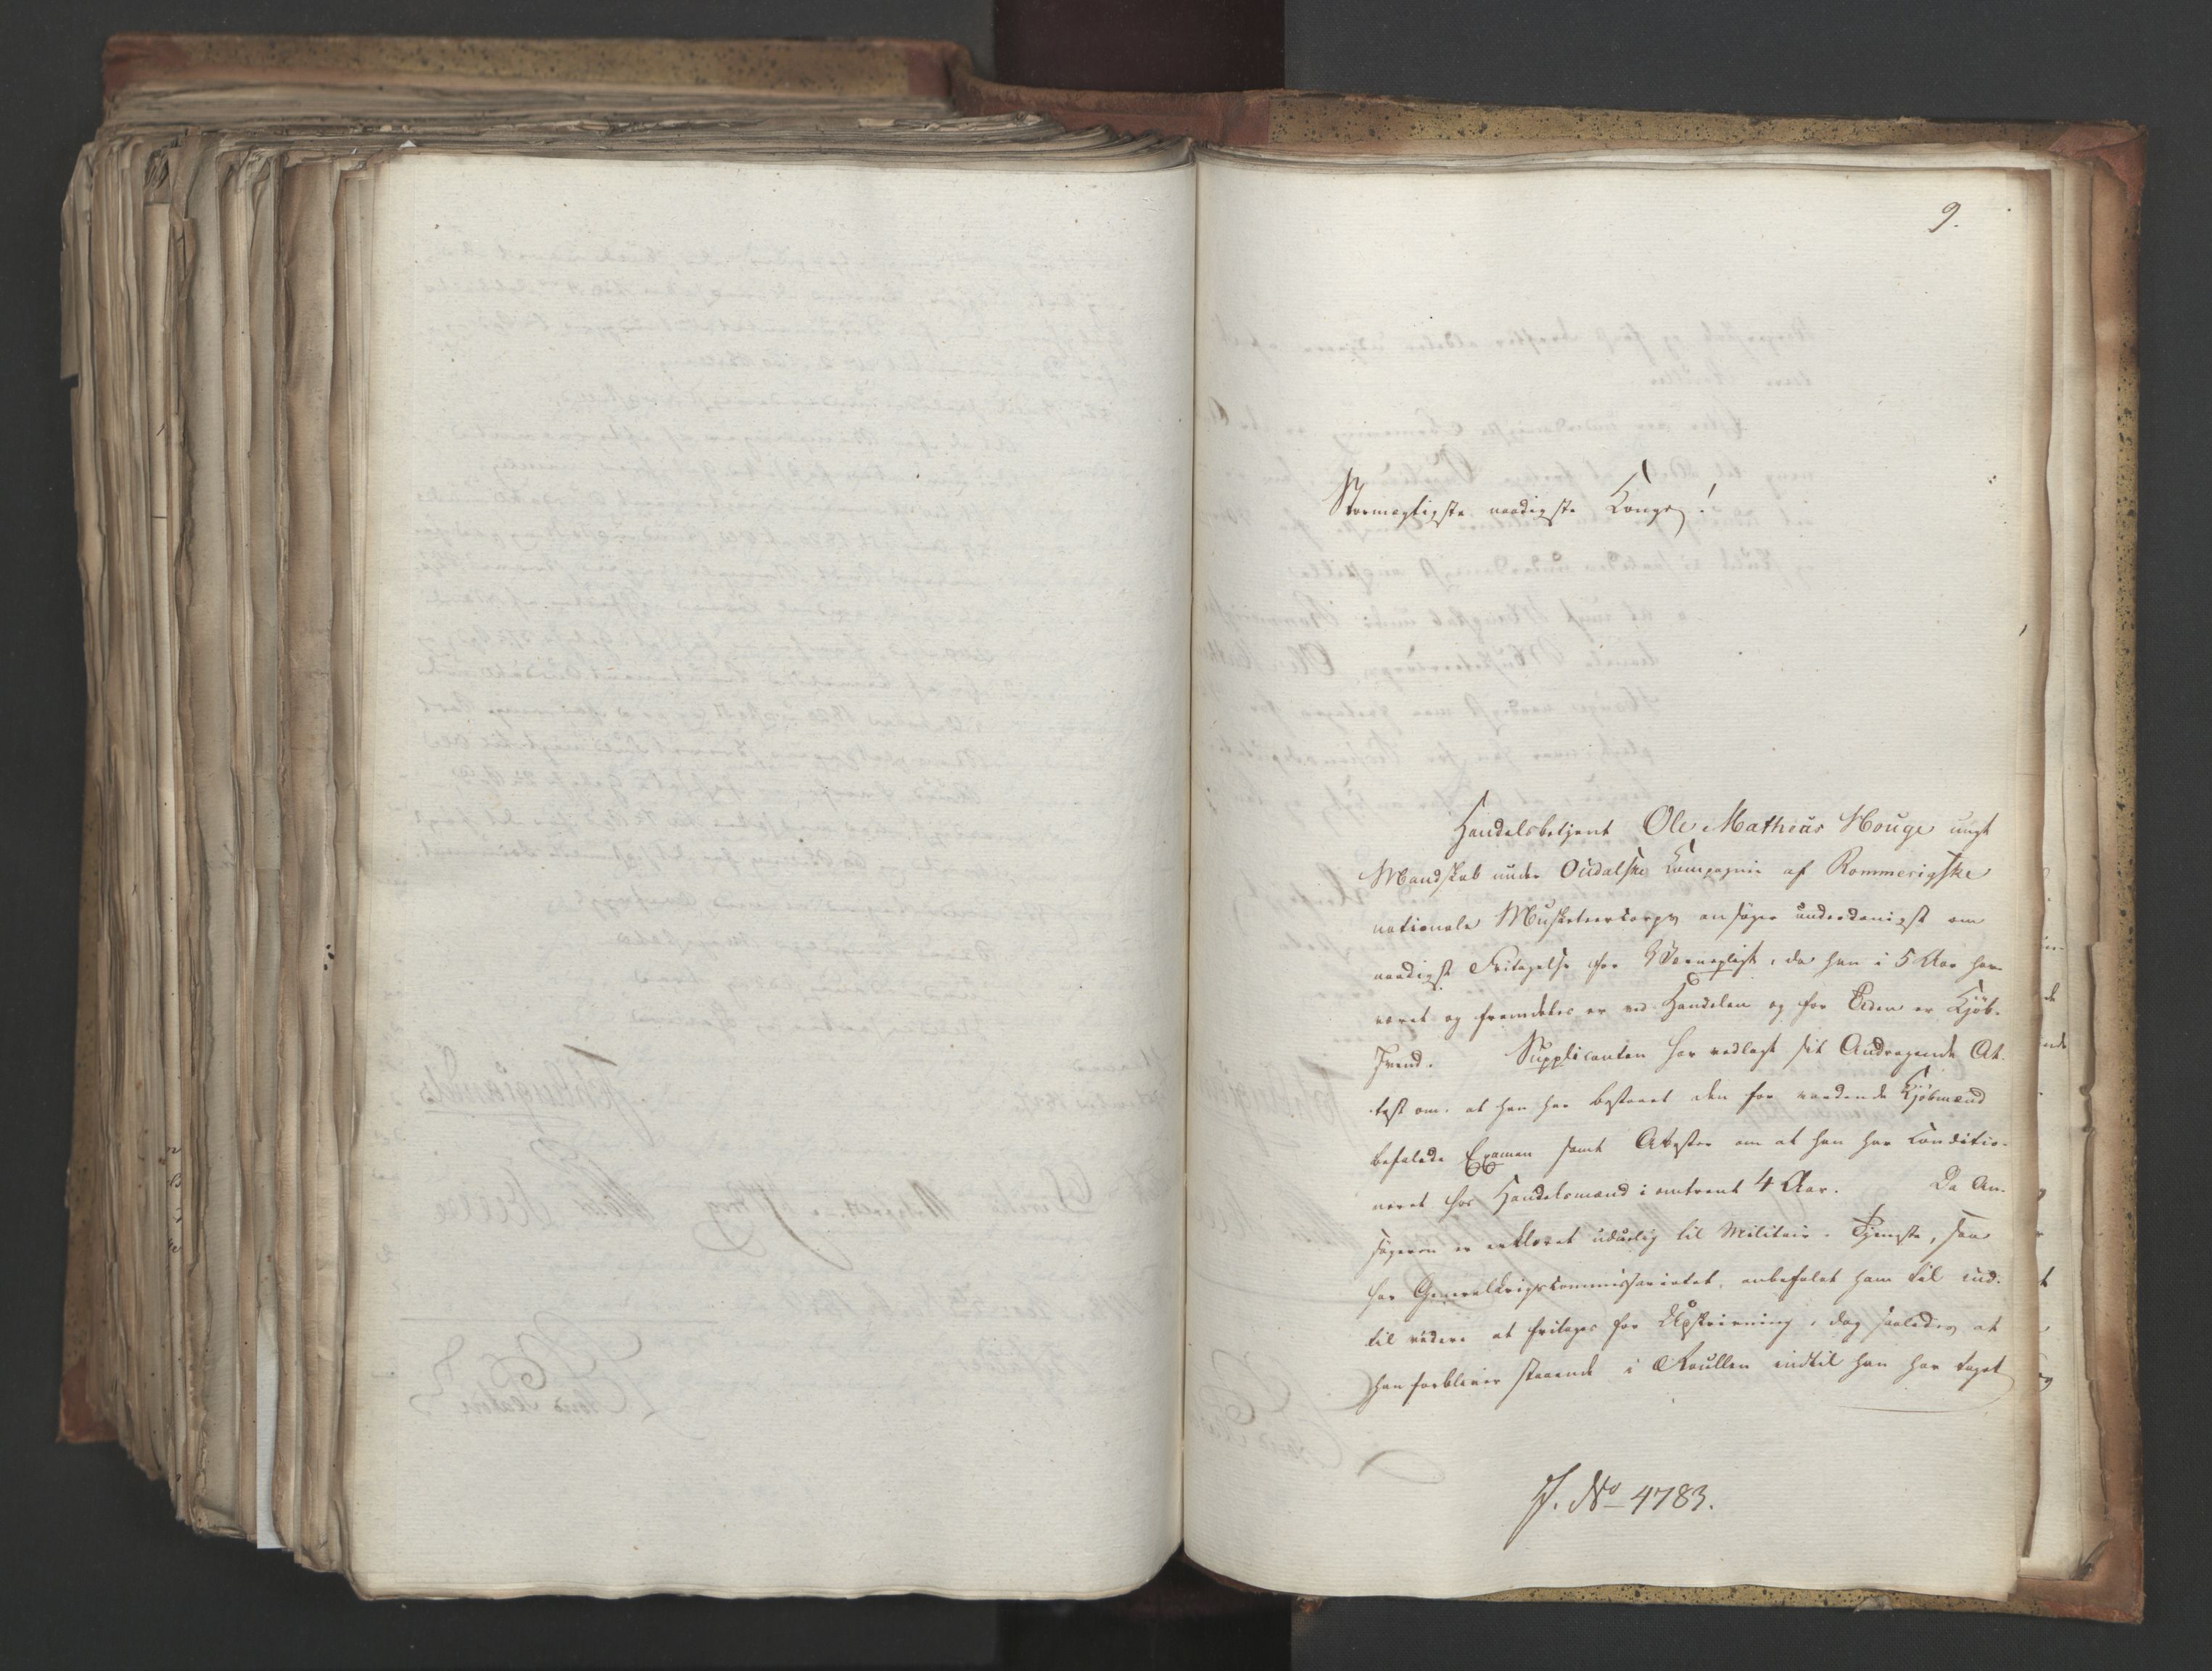 9.
Stormægtigste naadigste Konge!
Handelsbetjent Ole Mathias Houge ungt
Mandskab under Oudalske Kompagnie af Rommerigske
nationale Musketeerkorps ansøger underdanigst om
naadigst Fritagelse for Værnepligt, da han i 5 Aar har
været og fremdeles er ved Handelen og for Tiden er Kjøb-
svend. Supplicanten har vedlagt sit Andragende At-
test om at han har bestaaet den for vordende Kjøbmænd
befalede Examen samt Attester om at han har Conditio-
neret hos Handelsmænd i omtrent 4 Aar. Da An-
søgeren er erklæret uduelig til Militair-Tjeneste, saa
har Generalkrigskommissariatet anbefalet ham til ind-
til videre at fritages for Udskrivning, dog saaledes at
han forbliver staaende i Roullen indtil han har taget
J. No 4783.